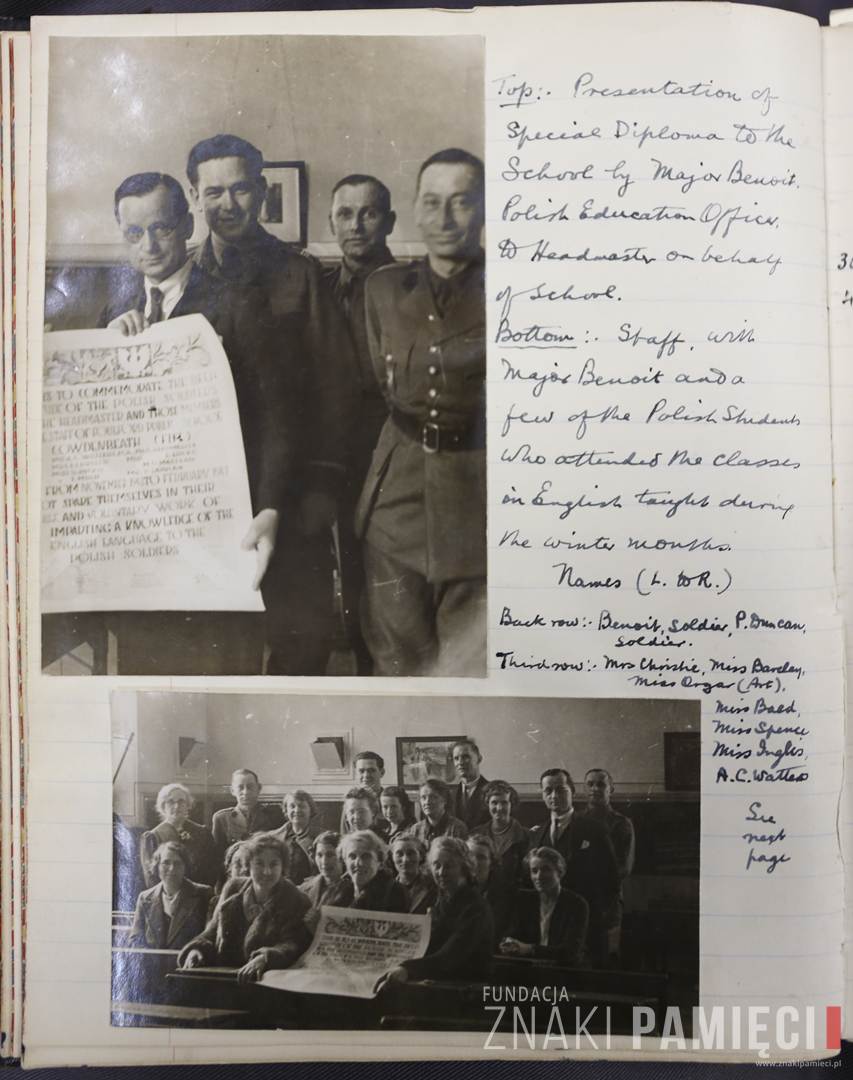 Top:. Presentation of
Special Diploma to the
School by Major Benoit,
Polish Education Officer,
to Headmaster on behalf
of School.
Bottom:. Staff, with
Major Benoit and a
few of the Polish Students
who attended the classes
in English taught during
the winter months.
Names (L. to R.)
Back row:. Benoit, Soldier, P. Duncan,
Soldier.
Third row:. Mrs Christie, Miss Barclay,
Miss Orgar (Art),
Miss Bald,
Miss Spence
Miss Inglis,
A.C. Watters
See
next
page
IS TO COMMEMORATE THE
OF THE POLISH SOLDIERS
HEADMASTER AND THOSE MEMBERS
COWDENBEATH
FROM NOVEMBER TO FEBRUARY
OT SPARE THEMSELVES IN THEIR
AND VOLUNTARY WORK OF
IMPARTING A KNOWLEDGE OF THE
ENGLISH LANGUAGE TO THE
POLISH SOLDIERS
FUNDACJA
ZNAKI PAMIĘCI
www.znakipamieci.pl